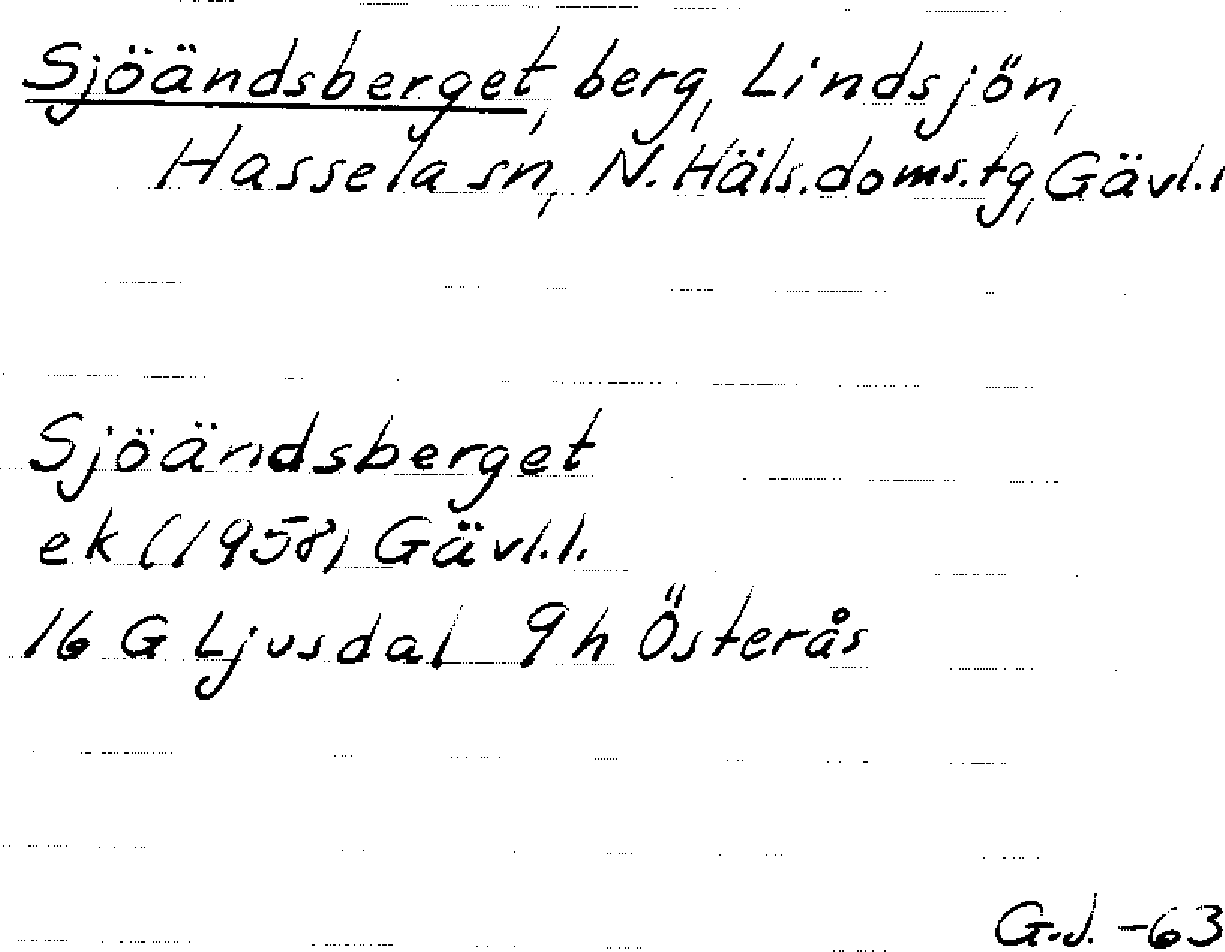 Sjöändsberget, berg, Lindsjön,
Hassela sn, N. Häls. doms. tg, Gävl. l
Sjöändsberget
ek (1958) Gävl. l.
16 G Ljusdal 9 h Österås
G. J. -63